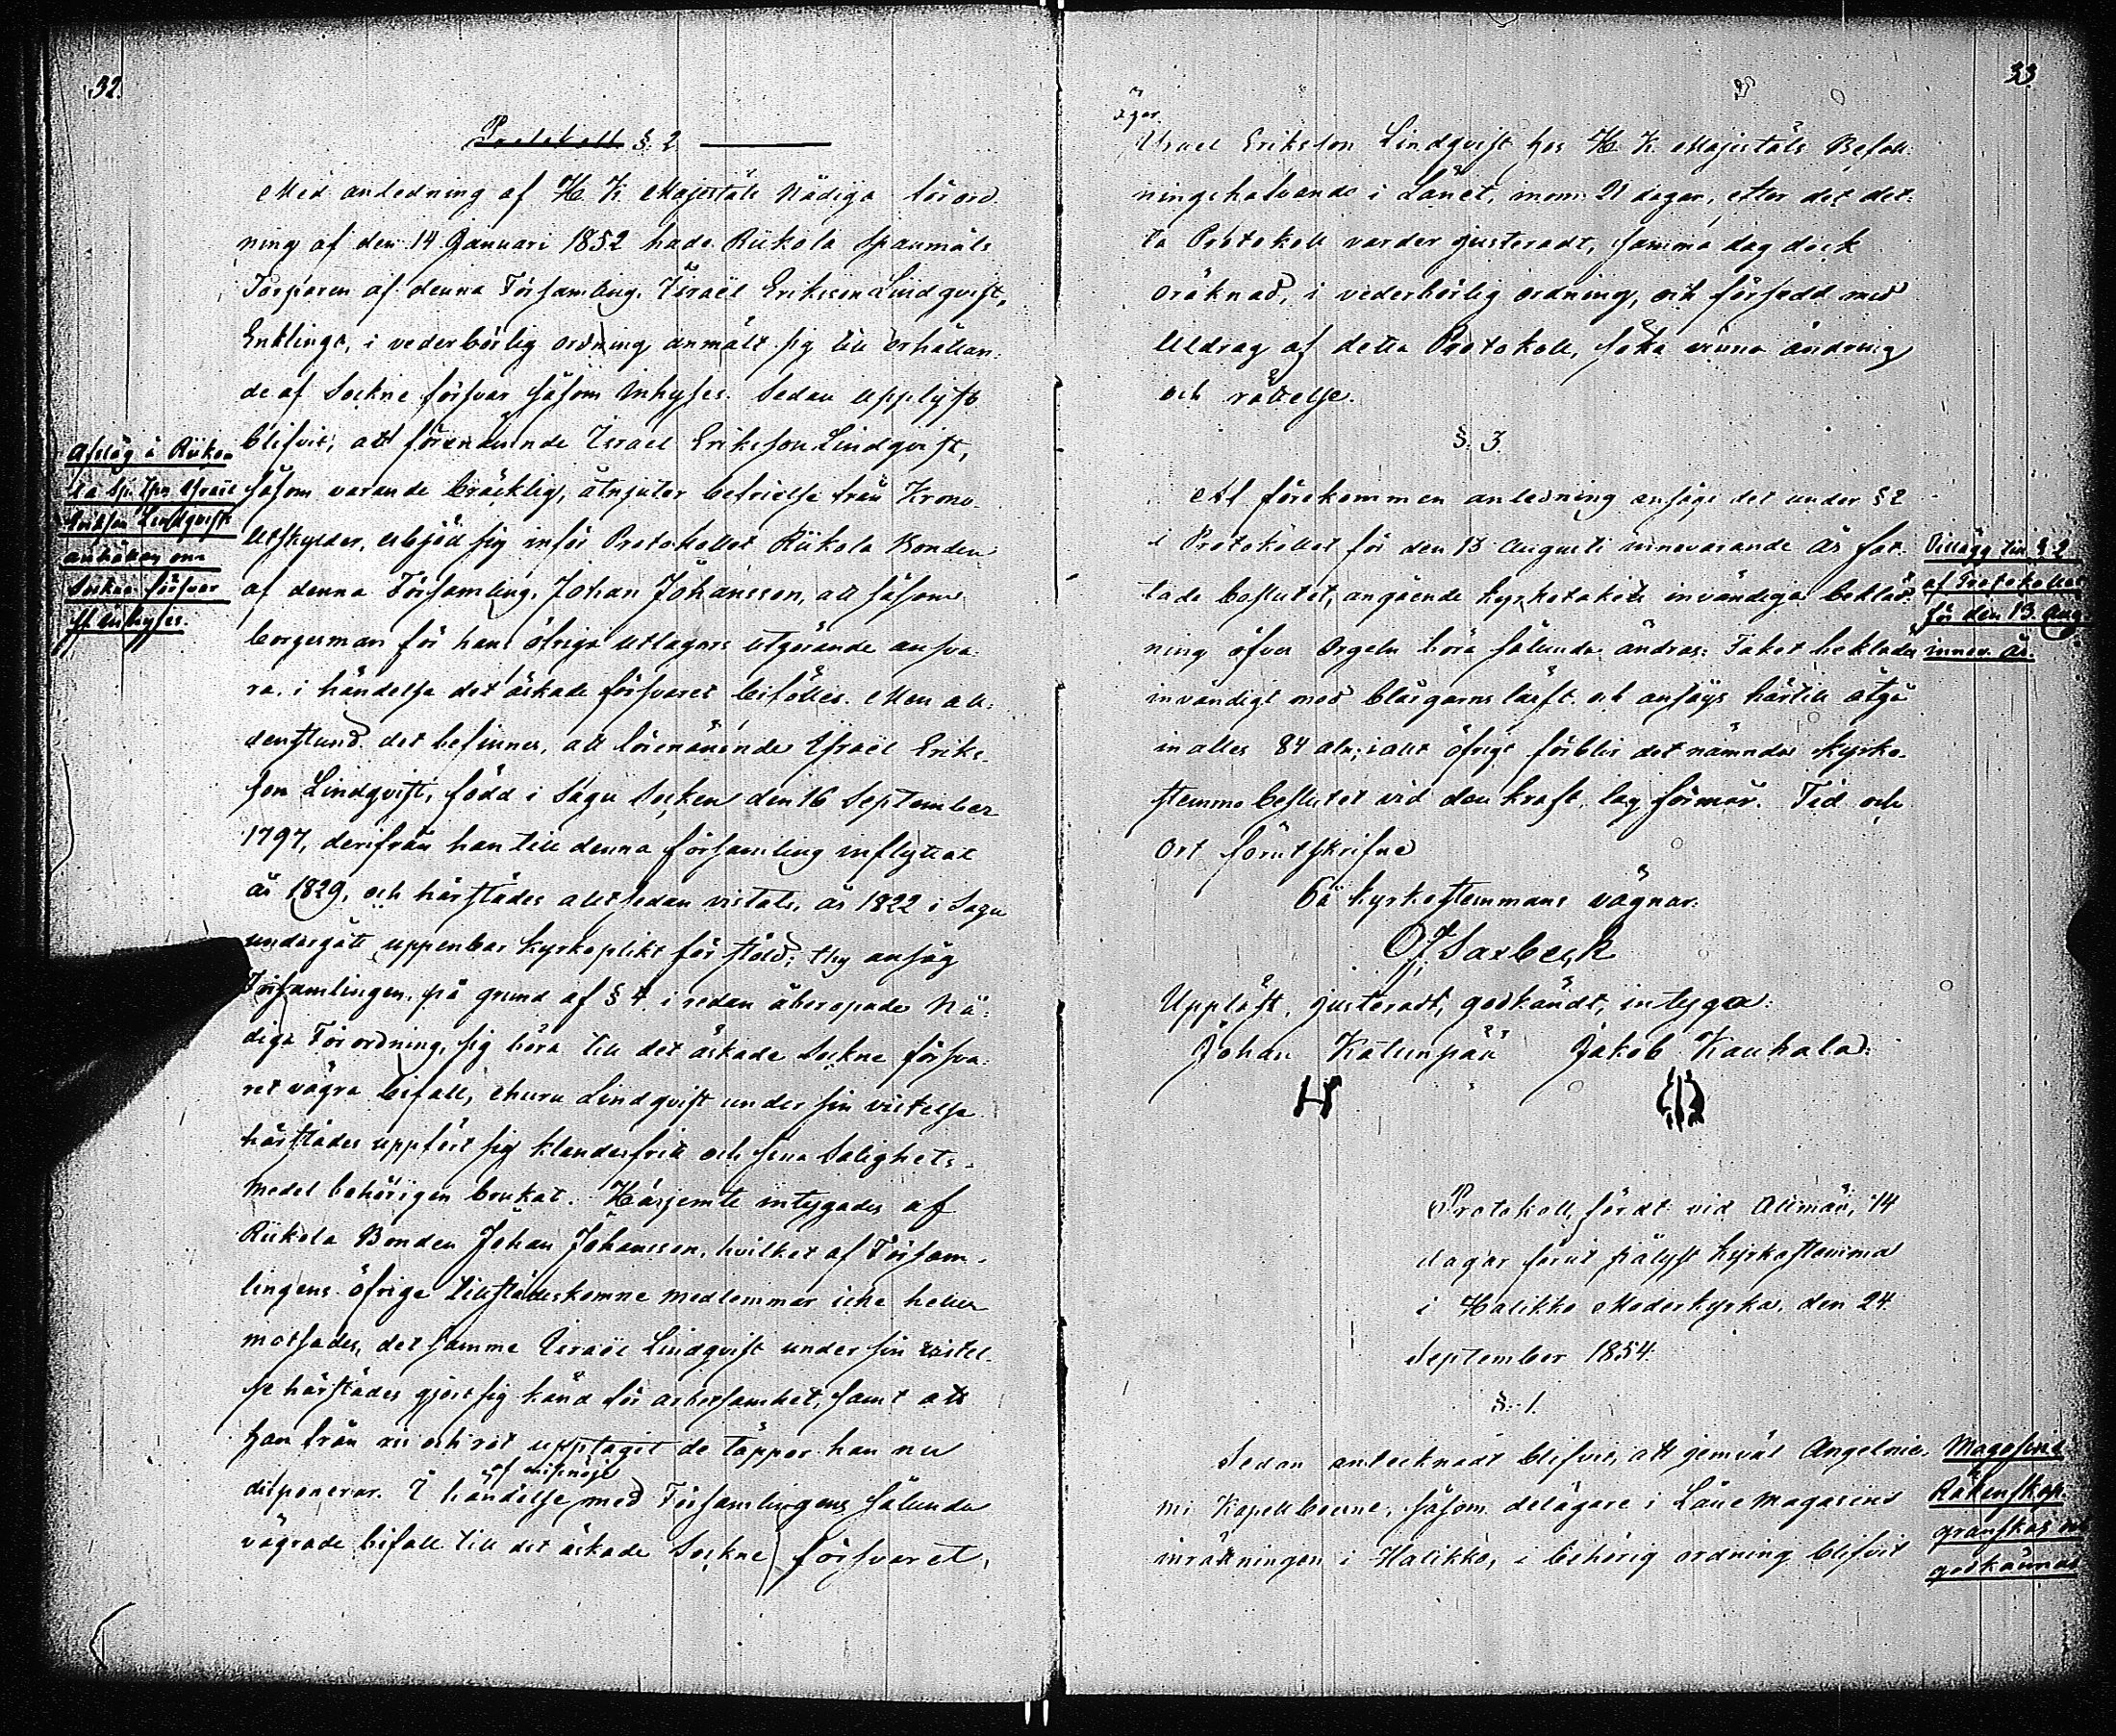 32.
Protokoll §. 2
Med anledning af H. K. Majestäts Nådiga förord
ning af den 14 Januari 1852 hade Riikola Spanmåls
Torparen af denna Församling, Israël Eriksson Lindqvist,
Enklings, i vederbörlig ordning anmält sig till erhållan:
de af Sockne försvar såsom Inhyses. Sedan upplyst
blifvit, att förenämnde Israel Eriksson Lindqvist,
såsom varande bräcklig, åtnjuter befrielse från Krono
Utskylder, utbjöd sig inför Protokollet Riikola Bonden
af denna Församling, Johan Johansson, att såsom
borgesman för hans öfriga utlagors utgörande ansva:
ra, i händelse det äskade försvaret bifölles. Men all:
denstund det befinnes, att förenämnde Israël Eriks
son Lindqvist, född i Sagu Socken den 16 September
1797, derifrån han till denna församling inflyttat
år 1829, och härstädes alltsedan vistats, år 1822 i Sagu
undergått uppenbar kyrkoplikt för stöld; thy ansåg
Församlingen, på grund af § 4 i redan åberopade Nå:
diga Förordning, sig böra till det äskade Sockne försva:
ret vägra bifall, ehuru Lindqvist under sin vistelse
härstädes uppfört sig klanderfritt och sina Salighets
medel behörigen brukat. Härjemte intygades af
Riikola Bonden Johan Johansson, hvilket af Försam
lingens öfrige tillstädeskomne medlemmar icke heller
motsades, det samme Israël Lindqvist under sin vistel
se härstädes gjort sig känd för arbetsamhet, samt att
han från ris och rot upptagit de täppor han nu
disponerar. I händelse af missnöje med Församlingens sålunda
vägrade bifall till det äskade Sockne försvaret,
Afslag å Riiko
la Sp. Tpn Israël
Eriksson Lindqvists
anhållan om
Sockne försvar
ss. Inhyses.
33.
äger
Israel Eriksson Lindqvist hos H. K. Majestäts Befall
ningshafvande i Länet, inom 21 dagar, efter det det:
ta Protokoll varder justeradt, samma dag dock
oräknad, i vederbörlig ordning, och försedd med
Utdrag af detta Protokoll, söka vinna ändring
och rättelse.
§. 3.
Af förekommen anledning ansågs det under § 2
i Protokollet för den 13 Augusti innevarande År fat:
tade beslutet, angående kyrkotakets invändiga bekläd:
ning öfver Orgeln böra sålunda ändras: Taket beklädes
invändigt med blågarns lärft, och ansågs härtill åtgå
in alles 84 aln; i allt öfrigt förblir det nämnda kyrko
stemmo beslutet vid den kraft, lag förmår. Tid och
Ort förutskrifne
På kyrkostemmans vägnar:
Upplöst, justeradt, godkändt, intyga:
Johan Jakob Kauhala
Tillägg till § 2
af Protokollet
för den 13. Aug.
innev. år.
Protokoll, fördt vid Allmän, 14
dagar förut pålyst kyrkostemma
i Halikko Moderkyrka, den 24
September 1854.
§. 1.
Sedan antecknadt blifvit, att jemväl Angelnie
mi Kapellboerne, såsom delägare i Låne magasins
inrättningen i Halikko, i behörig ordning blifvit
Magasins
Räkenskap.
granskas och
godkännas